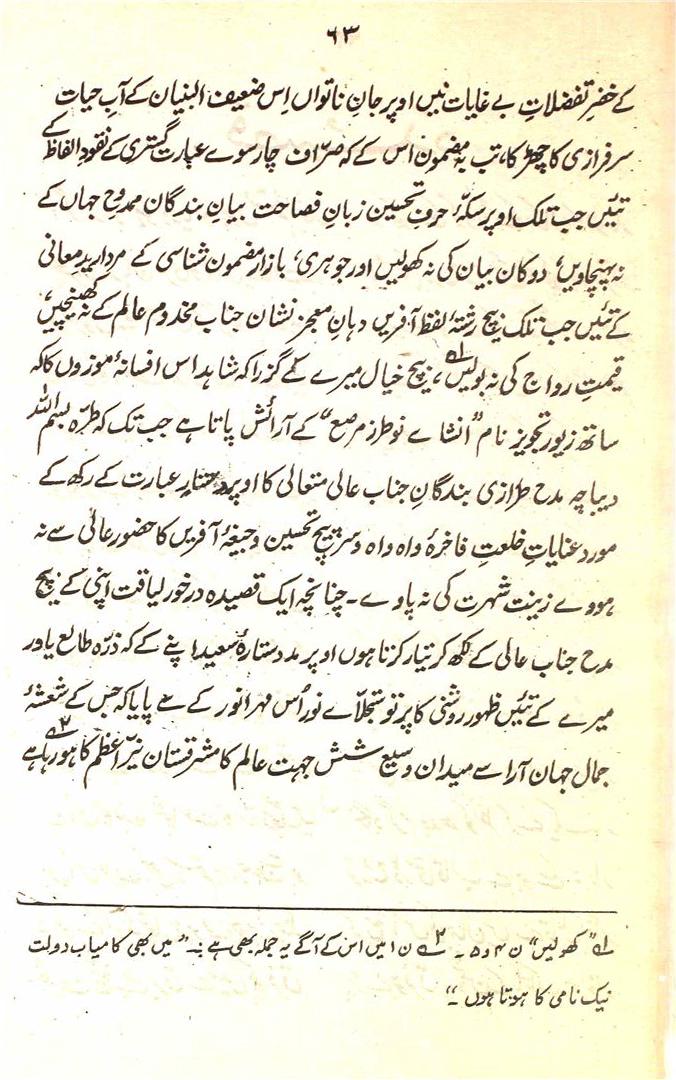 ۶۳
کے خضرِ تفضلاتِ بے غایات نیں اوپر جانِ ناتواں اِس ضعیف البنیان کے آبِ حیات
سرفرازی کا چھڑکا، تب بہ مضمون اس کے کہ صرّاف چار سوے عبارت گستری کے نقودِ الفاظ کے
تئیں جب تلک اوپر سکۂ حرفِ تحسین زبانِ فصاحت بیانِ بندگان ممدوحِ جہاں کے
نہ پہنچاویں، دوکان بیان کی نہ کھولیں اور جوہری، بازارِ مضمون شناسی کے مرواریدِ معانی
کے تئیں جب تلک بیچ رشتۂ لفظ آفریں دہانِ معجز نشان جناب مخدوم عالم کے نہ کھینچیں،
قیمتِ رواج کی نہ بولیں۱؎، بیچ خیال میرے کے گزرا کہ شاہد اس افسانۂ موزوں کا کہ
ساتھ زیور تجویز نام ”انشاے نو طرز مرصع“ کے آرائش پاتا ہے جب تک کہ طرّہ بسم اللہ
دیباچہ مدح طرازی بندگانِ جناب عالی متعالی کا اوپر دستارِ عبارت کے رکھ کے
مورد عنایاتِ خلعتِ فاخرۂ واہ واہ و سرپیچِ تحسین و جیغۂ آفریں کا حضورِ عالی سے نہ
ہووے زینت شہرت کی نہ پاوے۔ چنانچہ ایک قصیدہ درخور لیاقت اپنی کے بیچ
مدح جناب عالی کے لکھ کر تیار کرتا ہوں اوپر مدد ستارۂ سعید اپنے کے کہ ذرّہ طالع یاور
میرے کے تئیں ظہور روشنی کا پرتو تجلّاے نور اُس مہر انور کے سے پایا کہ جس کے شعشۂ
جمال جہان آرا سے میدان وسیع شش جہت عالم کا مشرقستان نیّرِ اعظم کا ہو رہا ہے۲؎
۱؎ ”کھولیں“ ن ۴ و ۵۔ ۲؎ ن ۱ میں اس کے آگے یہ جملہ بھی ہے :۔ ”میں بھی کامیاب دولت
نیک نامی کا ہوتا ہوں۔“